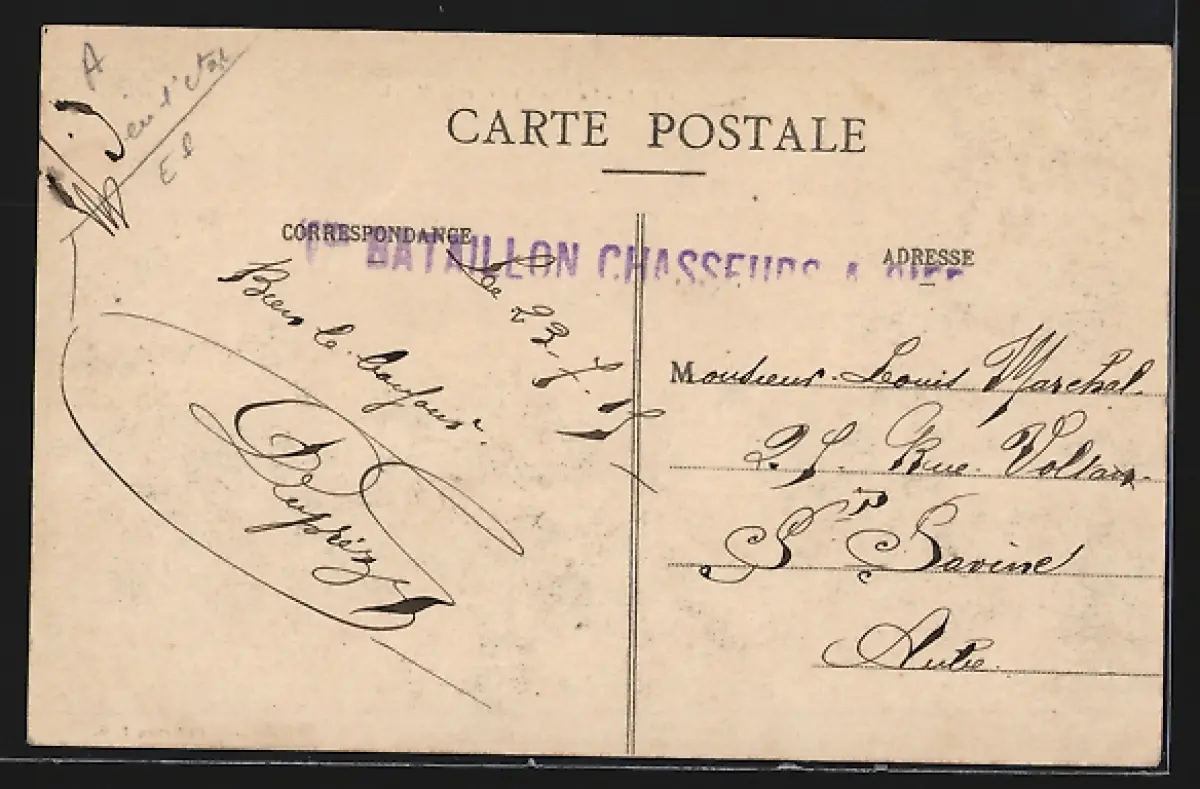 A
en l'état
CARTE POSTALE
CORRESPONDANCE
BATAILLON CHASSEURS A PIED
ADRESSE
Le 23.7.15
Bien le bonjour.
Monsieur Louis Marchal
Rue Voltaire
Ste Savine
Aube.